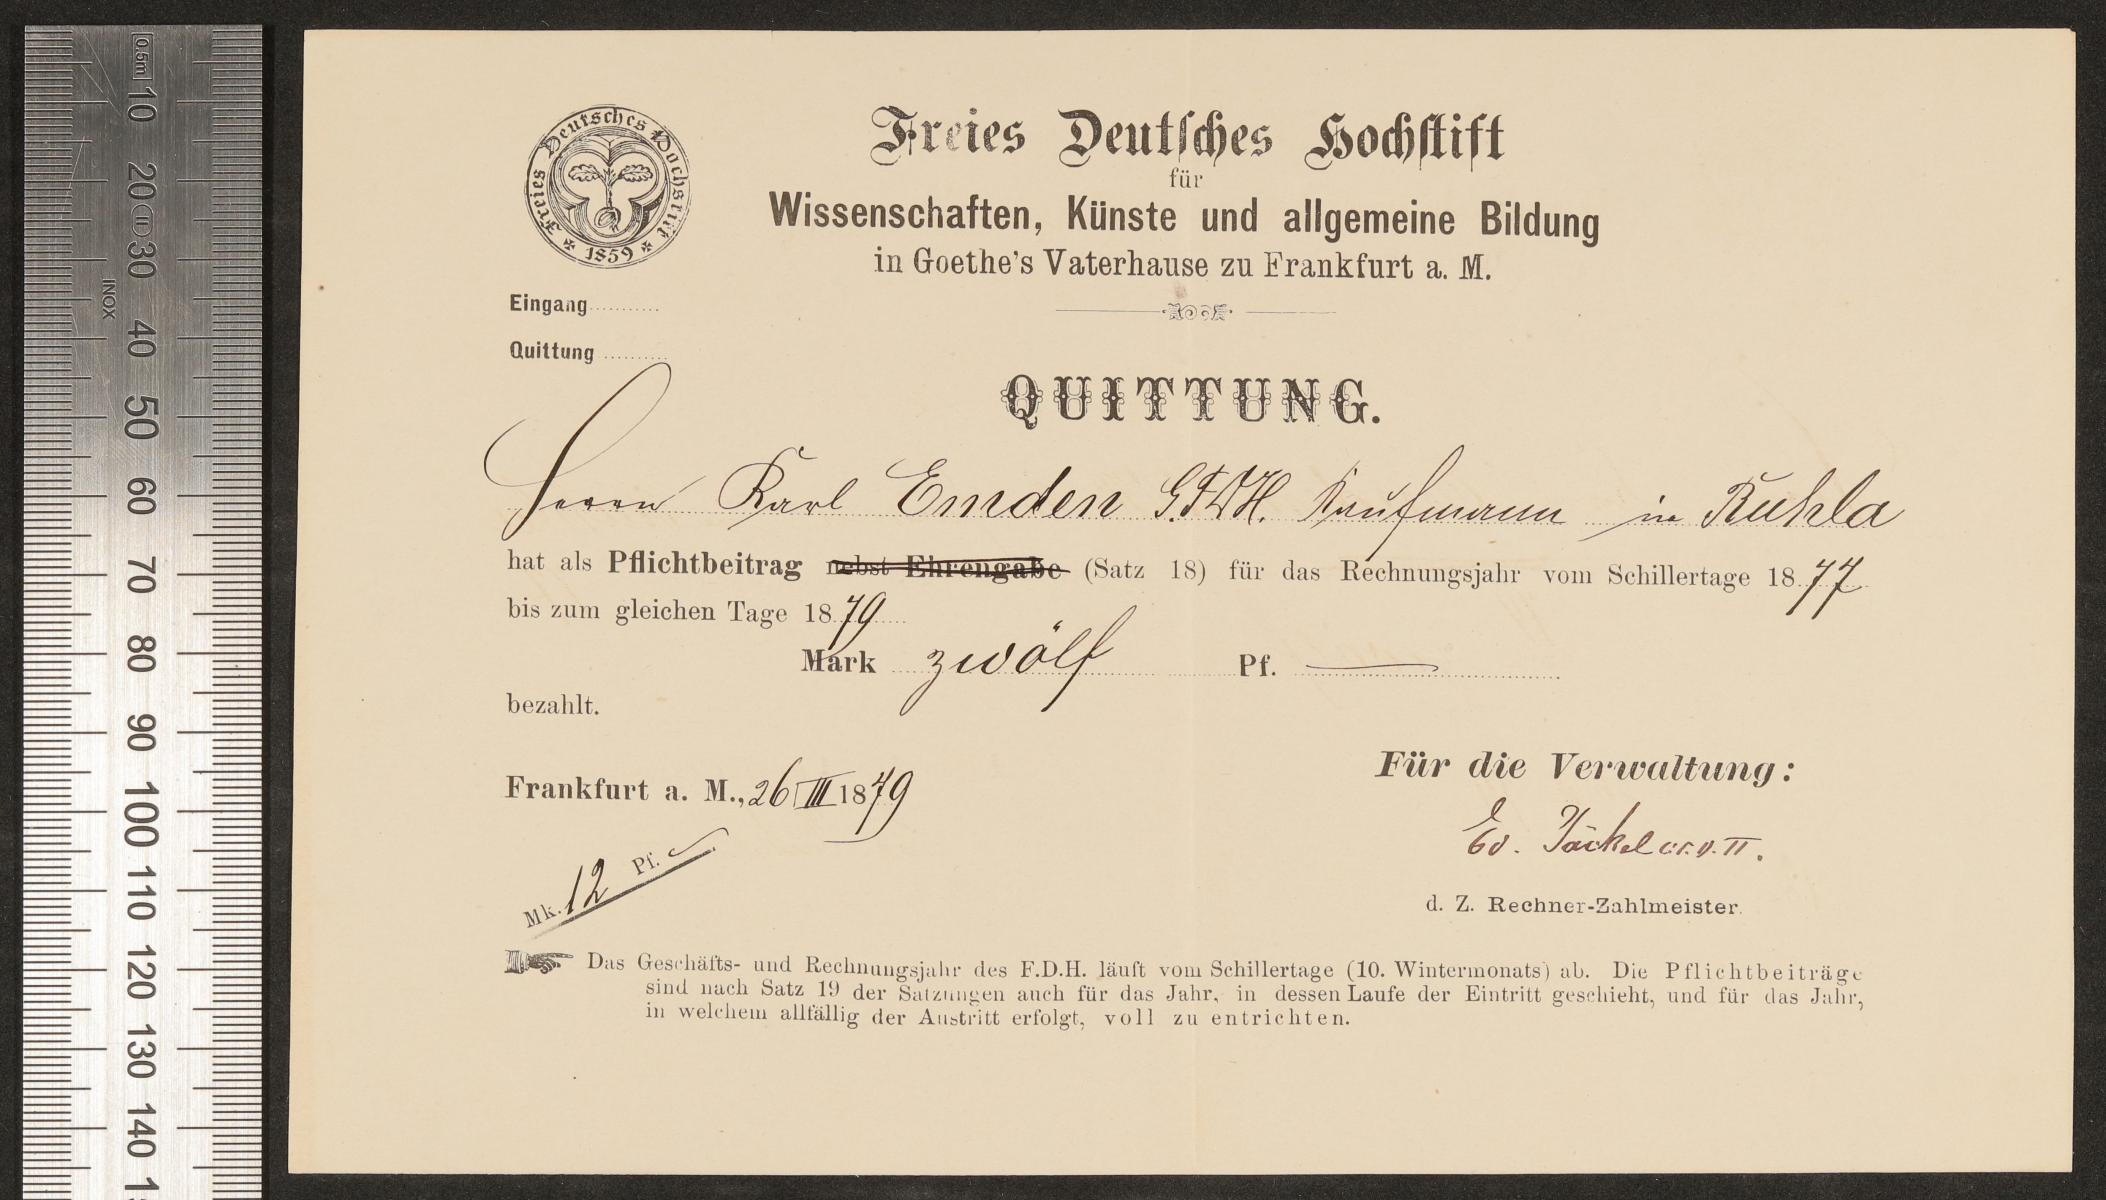 Freies Deutsches Hochstift
1859
Freies Deutsches Hochstift
für
Wissenschaften, Künste und allgemeine Bildung
in Goethe's Vaterhause zu Frankfurt a. M.
Eingang
Quittung
QUITTUNG.
Herrn Karl Emden G.F.D.H. Kaufmann in Ruhla
hat als Pflichtbeitrag nebst Ehrengabe (Satz 18) für das Rechnungsjahr vom Schillertage 1877
bis zum gleichen Tage 1879
Mark zwölf Pf. —
bezahlt.
Frankfurt a. M., 26 III 1879
Für die Verwaltung:
Ed. Jäckel
Mk. 12 Pf.
d. Z. Rechner-Zahlmeister.
☞ Das Geschäfts- und Rechnungsjahr des F.D.H. läuft vom Schillertage (10. Wintermonats) ab. Die Pflichtbeiträge
sind nach Satz 19 der Satzungen auch für das Jahr, in dessen Laufe der Eintritt geschieht, und für das Jahr,
in welchem allfällig der Austritt erfolgt, voll zu entrichten.
0.5m
10
20
30
INOX
40
50
60
70
80
90
100
110
120
130
140